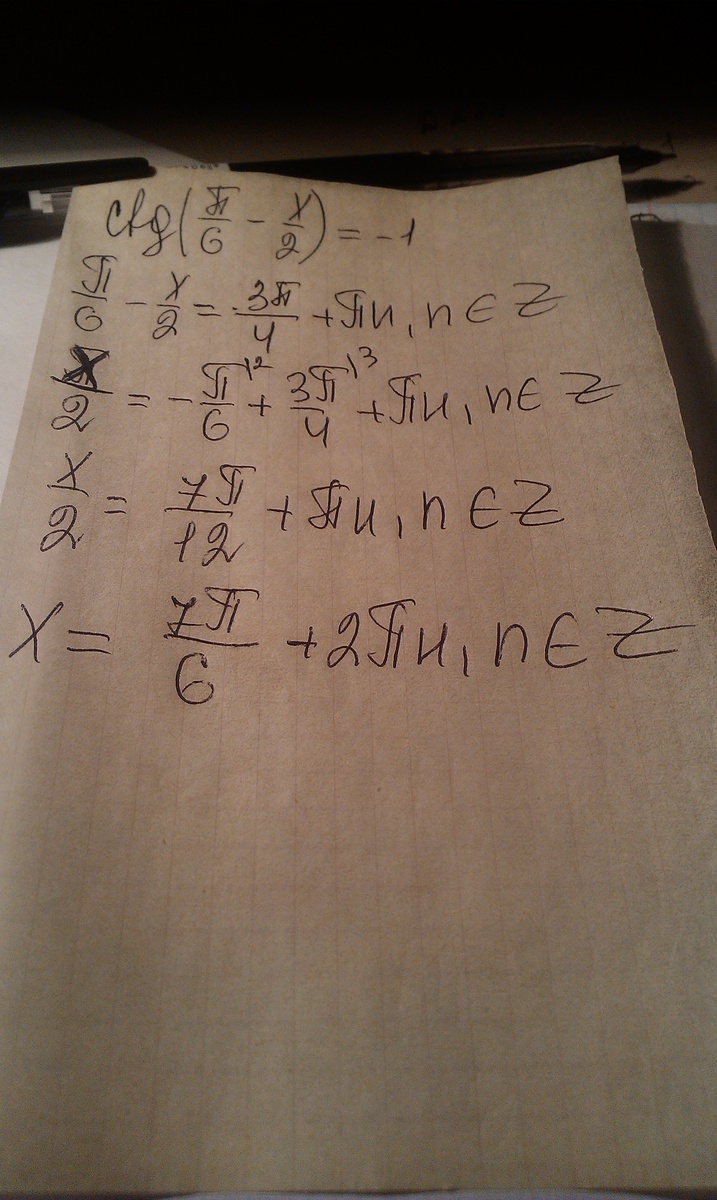 ctg(π/6 - x/2) = -1
π/6 - x/2 = 3π/4 + πn, n ∈ Z
x/2 = -π/6 \2 + 3π/4 \3 + πn, n ∈ Z
x/2 = 7π/12 + πn, n ∈ Z
x = 7π/6 + 2πn, n ∈ Z